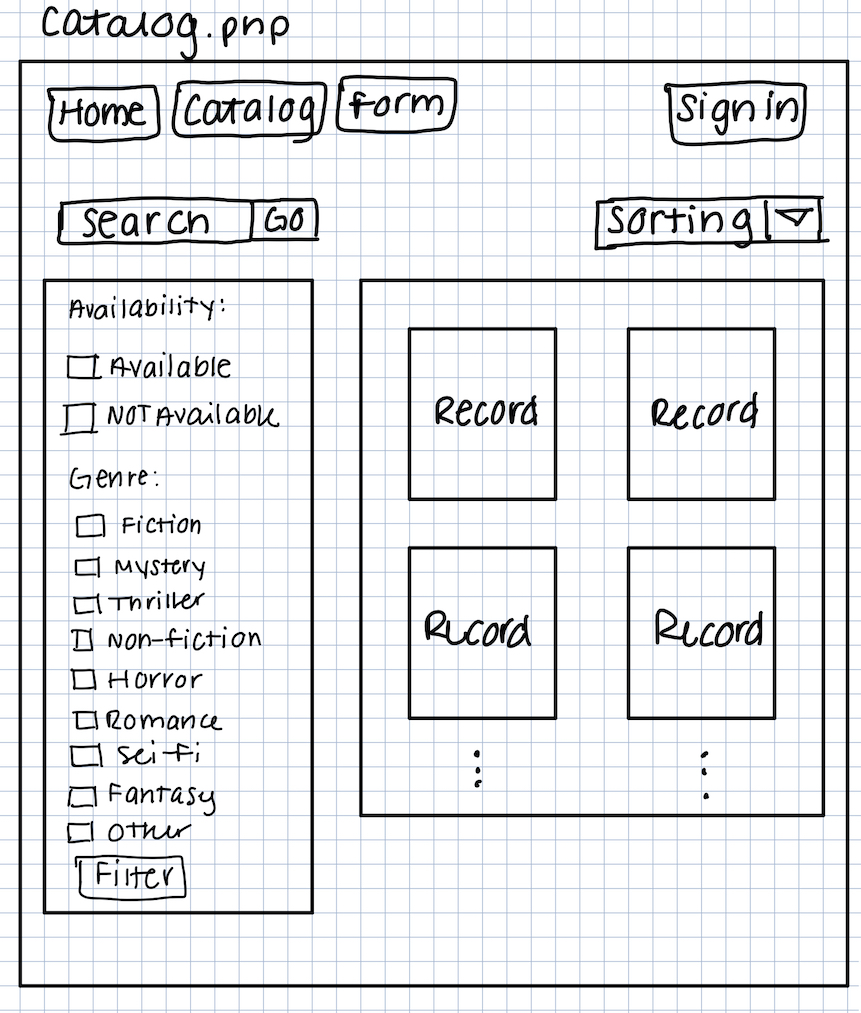 Catalog.php
Home Catalog Form Sign in
Search Go Sorting
Availability:
Available
NOT Available
Genre:
Fiction
Mystery
Thriller
Non-fiction
Horror
Romance
Sci-Fi
Fantasy
Other
Filter
Record Record
Record Record